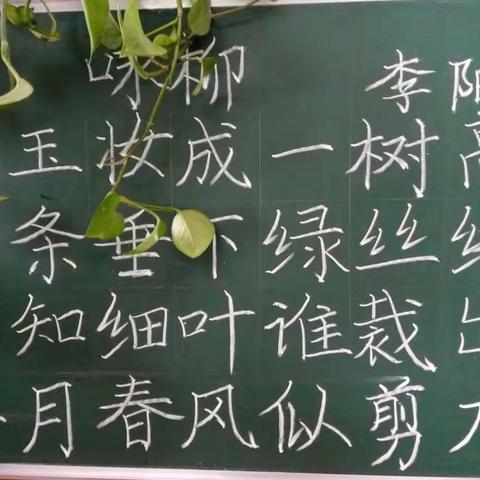 咏柳 李
玉妆成一树高
条垂下绿丝
知细叶谁裁
月春风似剪